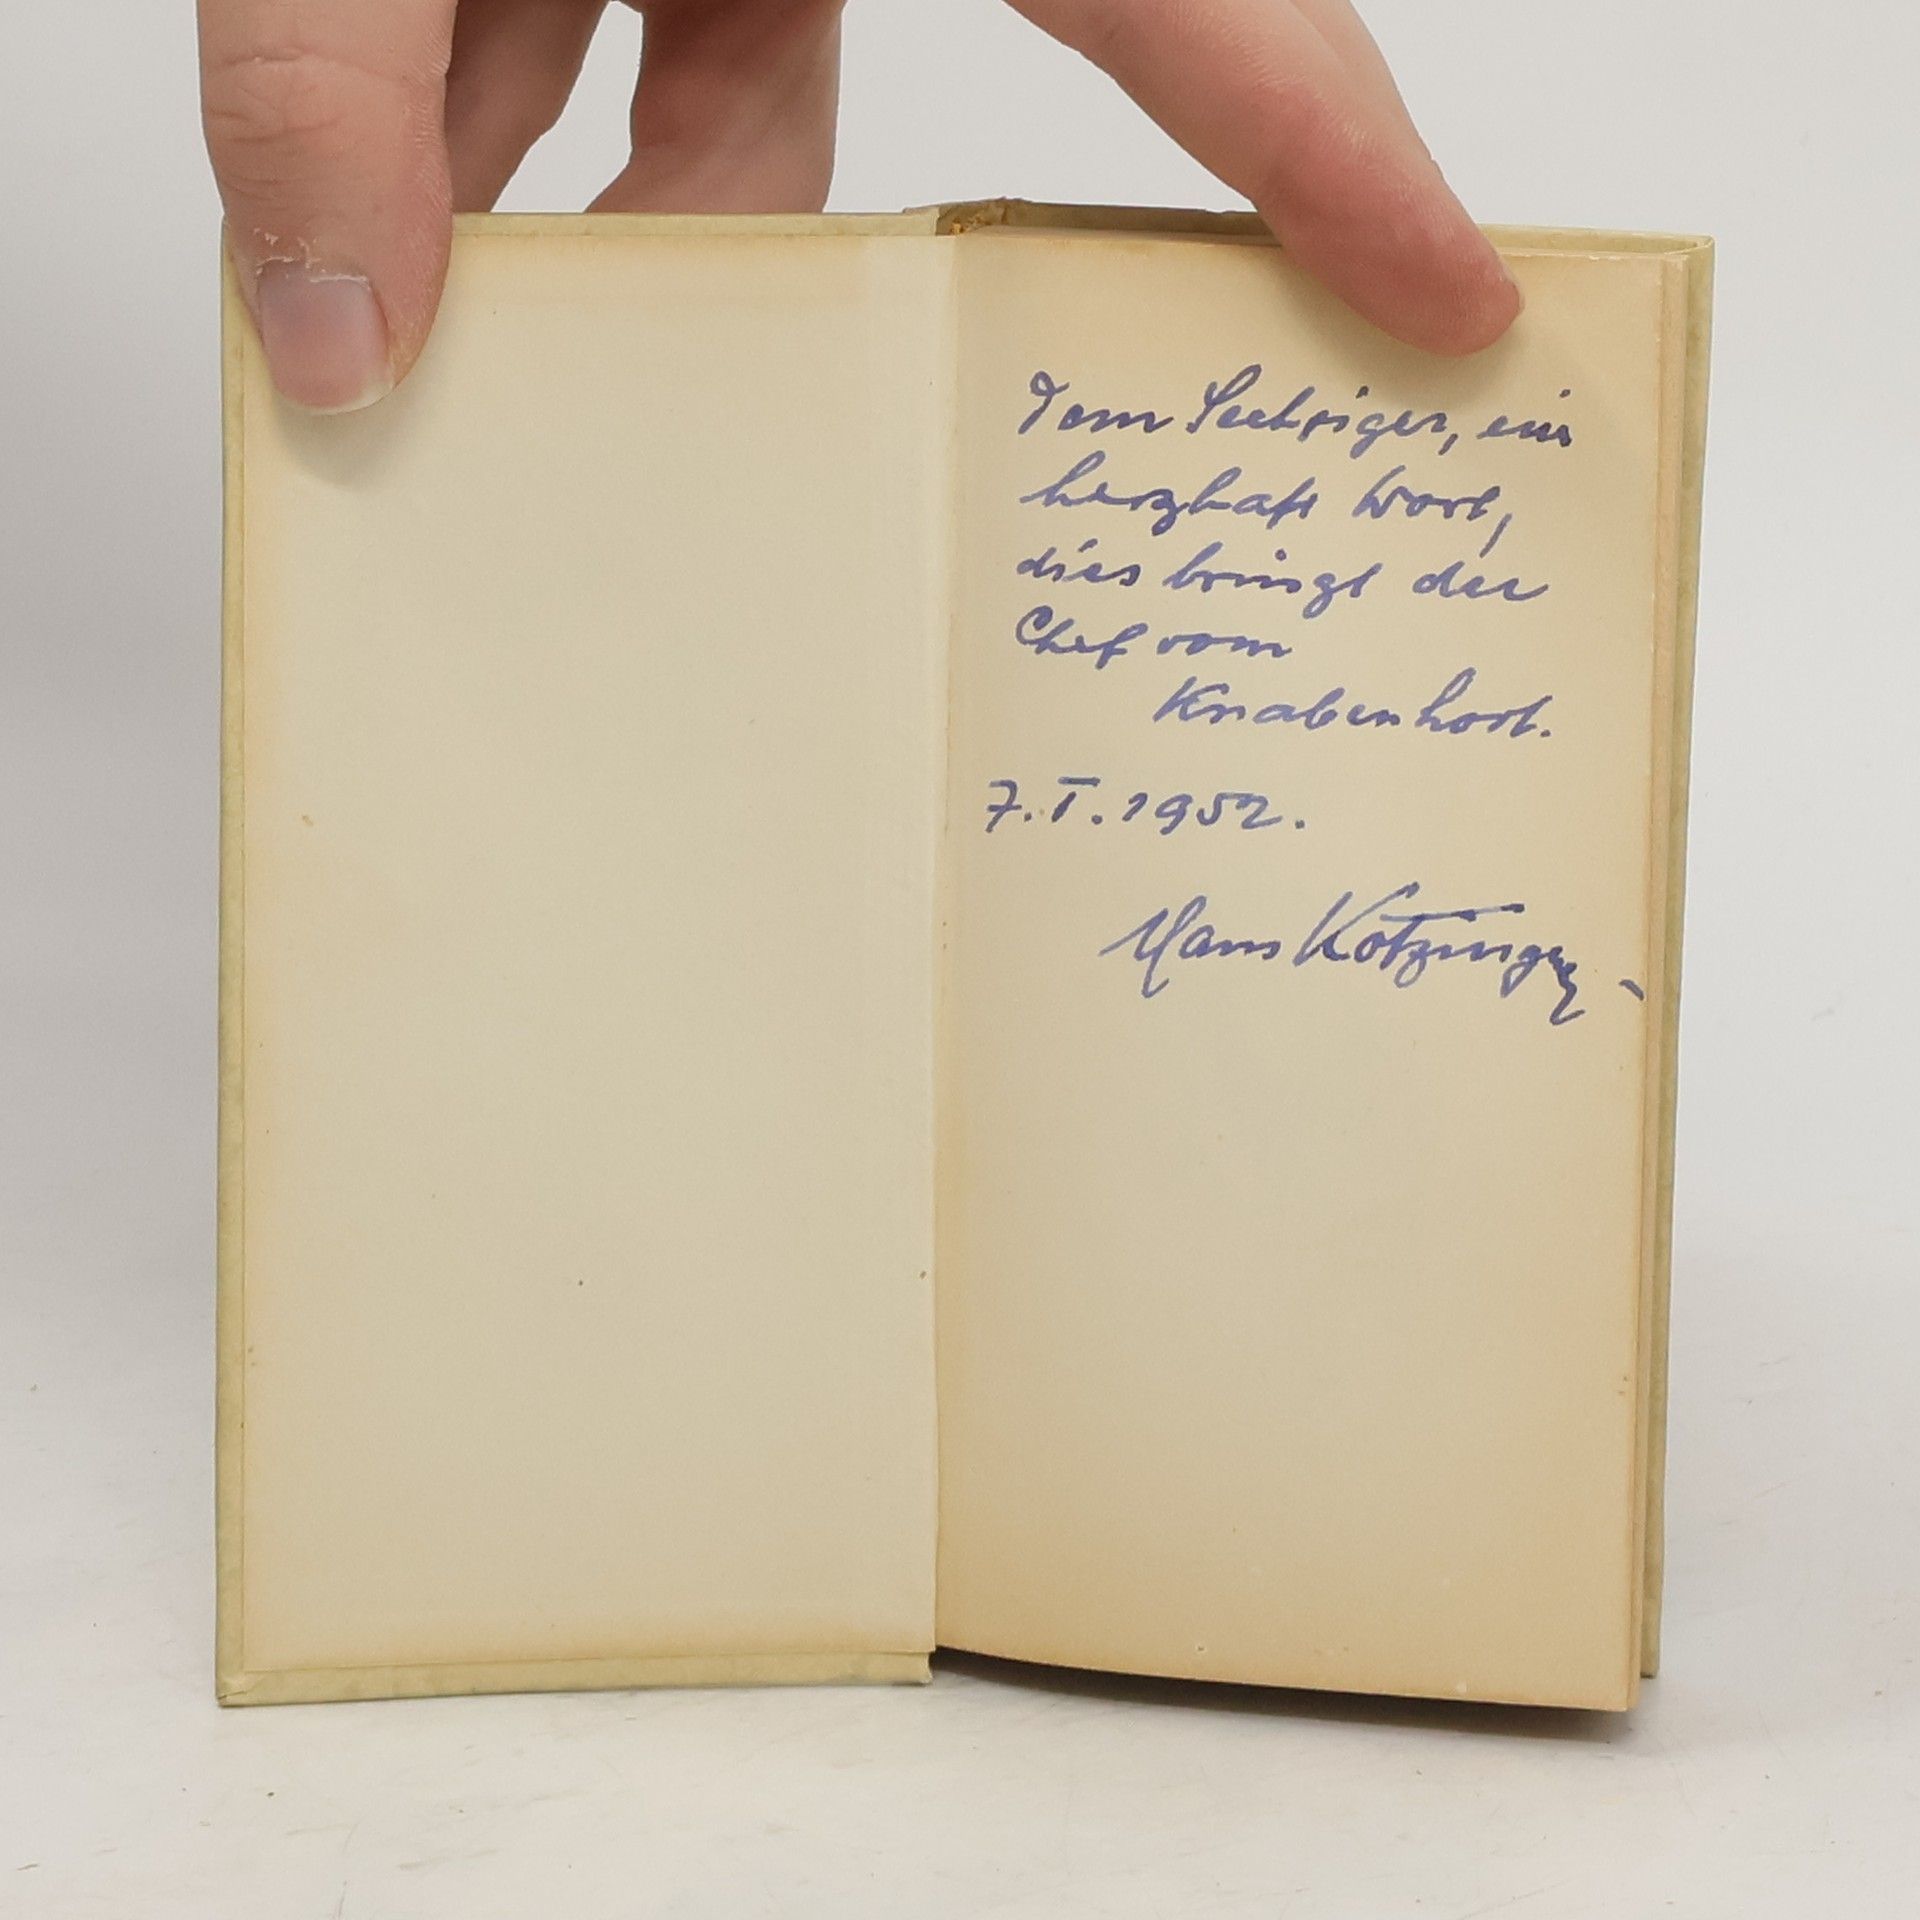 Dem Sechziger, ein
herzhaft Wort,
dies bringt der
Chef vom
Knabenhort.
7. I. 1952.
Hans Kotzinger